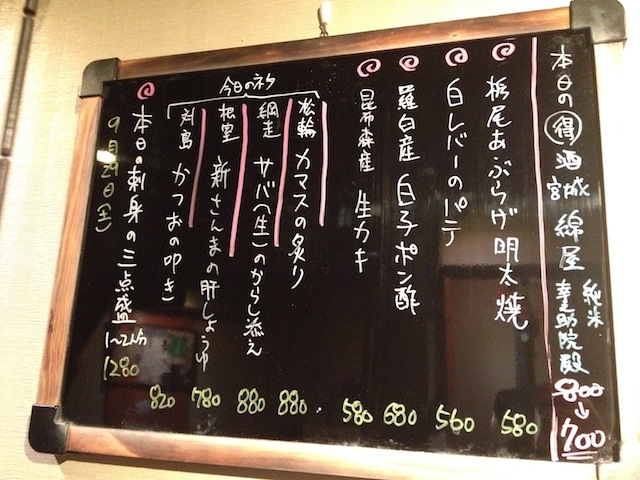 本日の得酒
宮城 綿屋 純米
幸之助院殿
800→700
栃尾あぶらげ明太焼 580
白レバーのパテ 560
羅臼産 白子ポン酢 680
昆布森産 生カキ 580
今日のネタ
松輪 カマスの炙り 880
網走 サバ(生)のからし添え 880
根室 新さんまの肝しょうゆ 780
対島 かつおの叩き 820
本日の刺身の三点盛 1〜2人分 1280
9月29日(金)